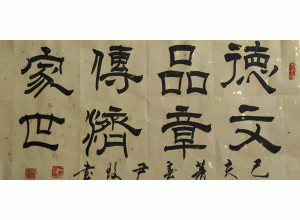 德文
品章
傳濟
家世
己亥